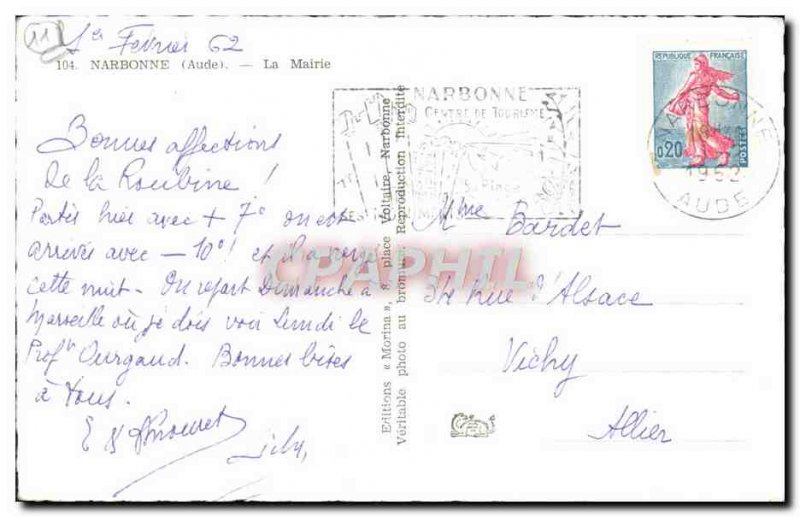 11
1er Fevrier 62
104. NARBONNE (Aude). — La Mairie
Bonnes affections
de la Roubine !
Partis hier avec + 7° on est
arrivés avec — 10° ! et il a neigé
cette nuit - On repart Dimanche à
Marseille où je dois voir Lundi le
Profr Ourgaud. Bonnes bises
à tous.
Lily
Editions « Morina », 8, place Voltaire, Narbonne
Véritable photo au bromure. Reproduction Interdite
NARBONNE
CENTRE DE TOURISME
REPUBLIQUE FRANÇAISE
0,20
POSTES
NARBONNE
AUDE
Mme Bardet
34 Rue d'Alsace
Vichy
Allier
CPAPHIL